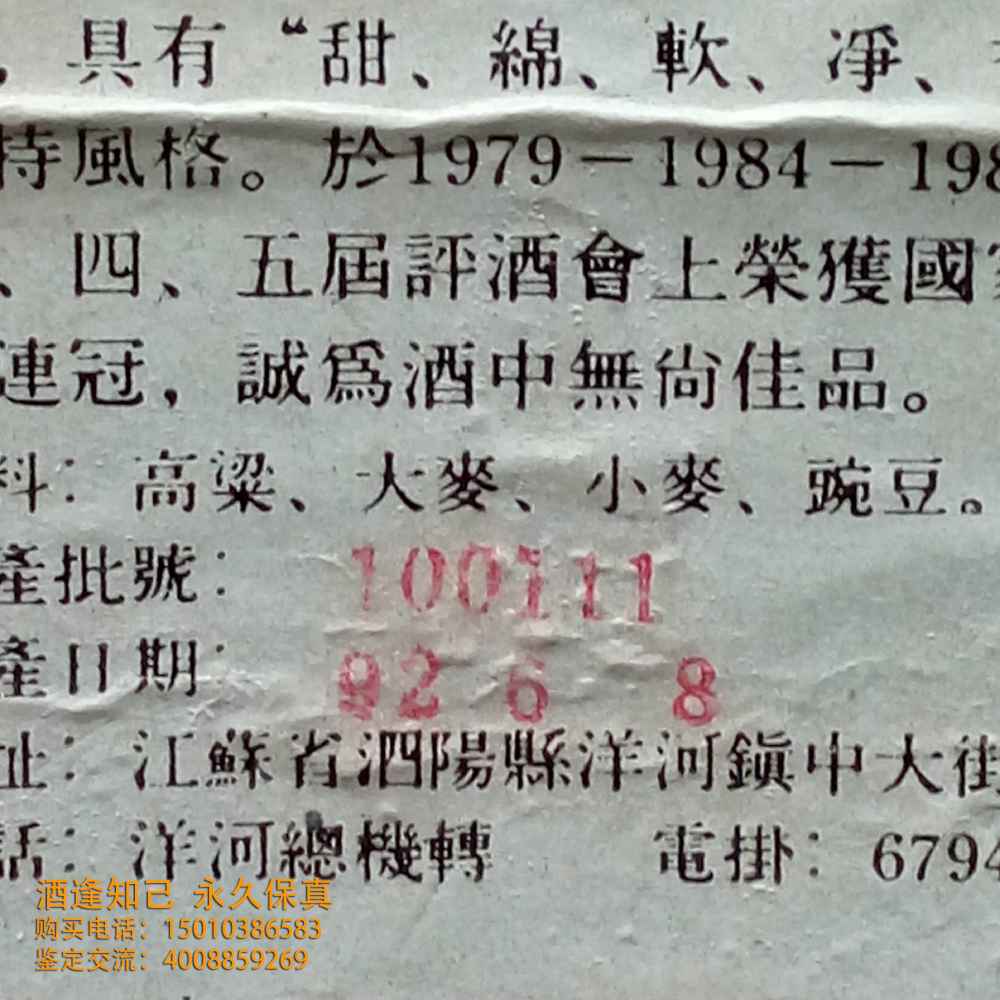 ，具有“甜、綿、軟、凈、
持風格。於1979－1984－198
、四、五届評酒會上榮獲國家
連冠，誠爲酒中無尚佳品。
料：高粱、大麥、小麥、豌豆。
産批號：100111
産日期：92 6 8
址：江蘇省泗陽縣洋河鎮中大街
話：洋河總機轉 電掛：6794
酒逢知己 永久保真
购买电话：15010386583
鉴定交流：4008859269